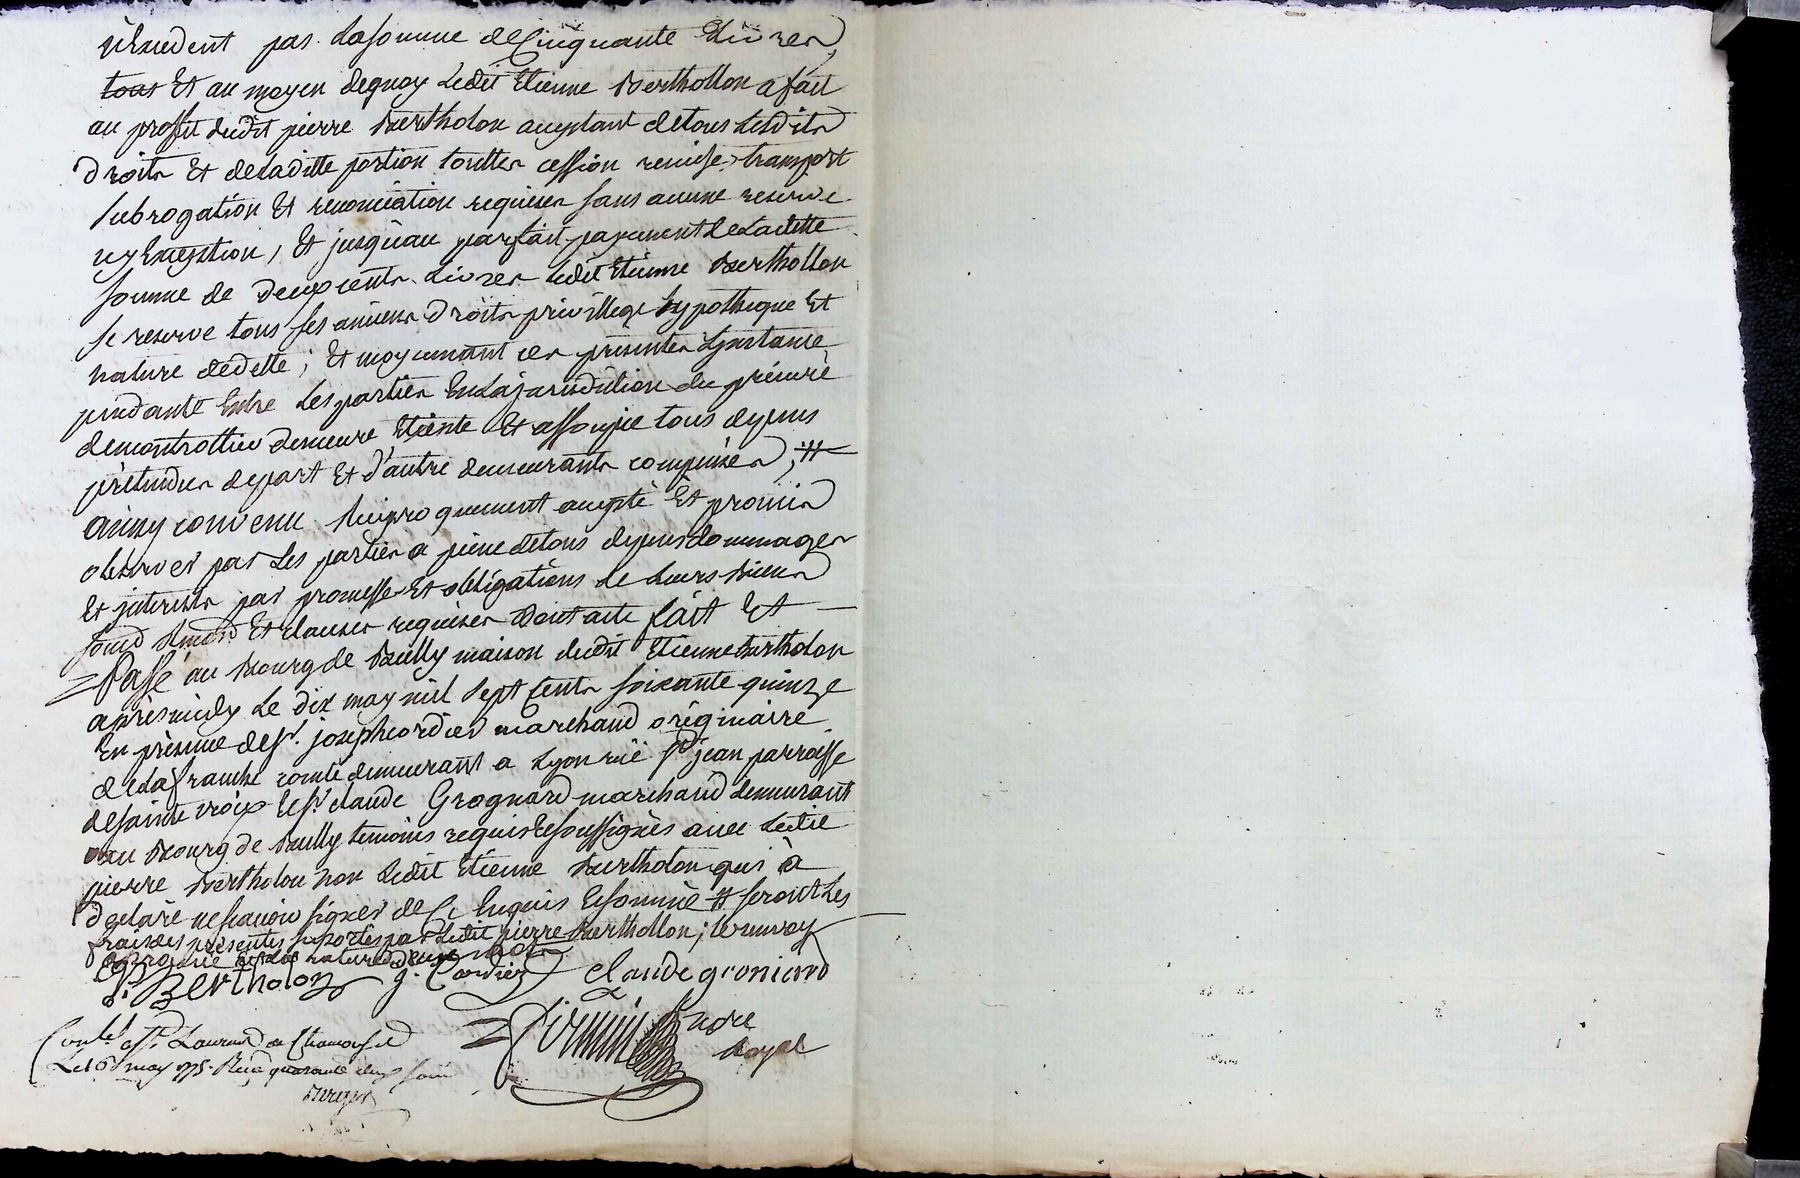 n'Excedent pas Lasomme deCinquante Livres,
tous Et au moyen dequoy Ledit Etienne Bertholon afait
au proffit dudit pierre Bertholon acceptant detous Lesdits
droits Et deladitte portion touttes cession remise transport
subrogation Et renonciation requises sans aucune reserve
ny Exception, Et jusqu'au parfait payement deLaditte
somme de deux cents Livres Ledit Etienne Berthollon
se reserve tous ses anciens droits privillege hypotheque Et
nature dedette; Et moyennant ces presentes Linstance
pendante Entre Les parties EnLajuridiction du prieuré
demontrottier demeure Eteinte Et assoupie tous depens
prétendus depart Et d'autre demeurants compensés, #
ainsy convenu Reciproquement accepté Et promis
observer par Les parties a peine detous depens dommages
Et interests par promesse Et obligations de Leurs Biens
soumd Renond Et clauses requises Dont acte fait Et
Passé au Bourg de Bully maison dudit Etienne Bertholon
aprèsmidy Le dix may mil sept cents soixante quinze
En présence desr. joseph cordier marchand originaire
delafranche comté demeurant a Lyon rüe st jean parroisse
desainte croix Et sr claude Grognard marchand demeurant
au Bourg de Bully temoins requis Et soussignés avec Ledit
pierre Bertholon non Ledit Etienne Bertholon qui à
declaré nesçavoir signer deCe Enquis Et sommé # seront Les
frais des présentes suportés par Ledit pierre Berthollon; le renvoy
approuvé
P. Bertholon J. Cordier claude groniard
Nore
Royal
Conlé a st. Laurend de Chamousset
Le 16 may 1775. Reçu quarante deux sous